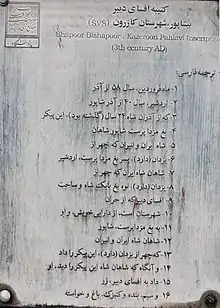 کتیبه افسای دبیر
بیشاپور، شهرستان کازرون (SVS)
Shapoor Bishapoor, Kazeroon Pahlavi Inscription
(3th century AD)
ترجمه فارسی:
۱- ماه فروردین، سال ۵۸ از آذر
۲- اردشیر، سال ۴۰ از آذر شاپور
۳- که از آذران شاه ۲۴ سال (گذشته بود)، این پیکر
۴- بغ مزدا پرست شاپور شاهان
۵- شاه ایران و انیران که چهر از
۶- یزدان (دارد)، پسر بغ مزدا پرست، اردشیر
۷- شاهان شاه ایران که چهر از
۸- یزدان (دارد)، نوه بغ بابک شاه و ساخت
۹- افسای دبیر که از حران
۱۰- شهرستان است، از دارایی خویش، و او
۱۱- به بغ مزدا پرست، شاپور
۱۲- شاهان شاه ایران و انیران
۱۳- که چهر از یزدان (دارد)، این پیکر را داد
۱۴- و آنگاه که شاهان شاه این پیکر را دید، او
۱۵- داد به افسای دبیر، زر
۱۶- و سیم، بنده و کنیزک، باغ و خواسته